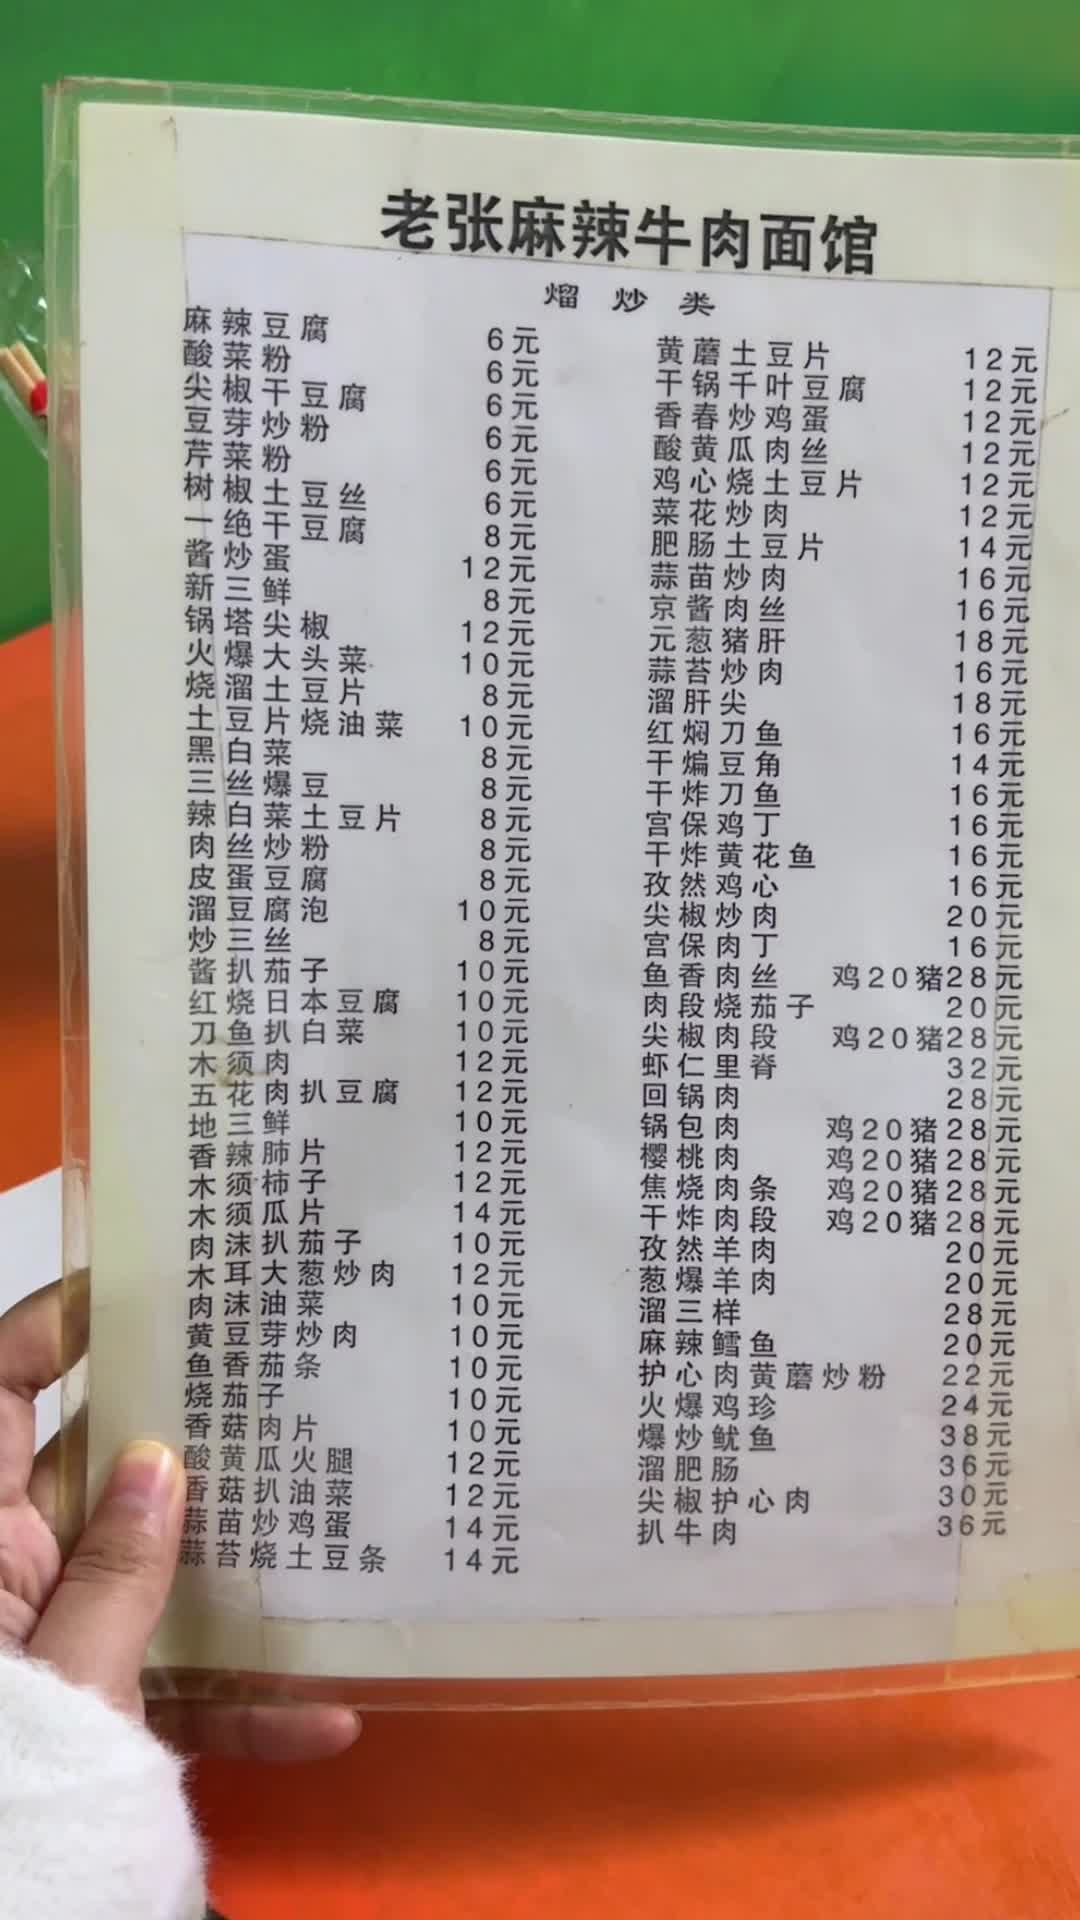 老张麻辣牛肉面馆
熘炒类
麻辣豆腐 6元
酸菜粉 6元
尖椒干豆腐 6元
豆芽炒粉 6元
芹菜粉 6元
树椒土豆丝 6元
一绝干豆腐 8元
酱炒蛋 12元
新三鲜 8元
锅塔尖椒 12元
火爆大头菜 10元
烧溜土豆片 8元
土豆片烧油菜 10元
黑白菜 8元
三丝爆豆 8元
辣白菜土豆片 8元
肉丝炒粉 8元
皮蛋豆腐 8元
溜豆腐泡 10元
炒三丝 8元
酱扒茄子 10元
红烧日本豆腐 10元
刀鱼扒白菜 10元
木须肉 12元
五花肉扒豆腐 12元
地三鲜 10元
香辣肺片 12元
木须柿子 12元
木须瓜片 14元
肉沫扒茄子 10元
木耳大葱炒肉 12元
肉沫油菜 10元
黄豆芽炒肉 10元
鱼香茄条 10元
烧茄子 10元
香菇肉片 10元
酸黄瓜火腿 12元
香菇扒油菜 12元
蒜苗炒鸡蛋 14元
蒜苔烧土豆条 14元
黄蘑土豆片 12元
干锅千叶豆腐 12元
香春炒鸡蛋 12元
酸黄瓜肉丝 12元
鸡心烧土豆片 12元
菜花炒肉 12元
肥肠土豆片 14元
蒜苗炒肉 16元
京酱肉丝 16元
元葱猪肝 18元
蒜苔炒肉 16元
溜肝尖 18元
红焖刀鱼 16元
干煸豆角 14元
干炸刀鱼 16元
宫保鸡丁 16元
干炸黄花鱼 16元
孜然鸡心 16元
尖椒炒肉 20元
宫保肉丁 16元
鱼香肉丝 鸡20猪28元
肉段烧茄子 20元
尖椒肉段 鸡20猪28元
虾仁里脊 32元
回锅肉 28元
锅包肉 鸡20猪28元
樱桃肉 鸡20猪28元
焦烧肉条 鸡20猪28元
干炸肉段 鸡20猪28元
孜然羊肉 20元
葱爆羊肉 20元
溜三样 28元
麻辣鳕鱼 20元
护心肉黄蘑炒粉 22元
火爆鸡珍 24元
爆炒鱿鱼 38元
溜肥肠 36元
尖椒护心肉 30元
扒牛肉 36元